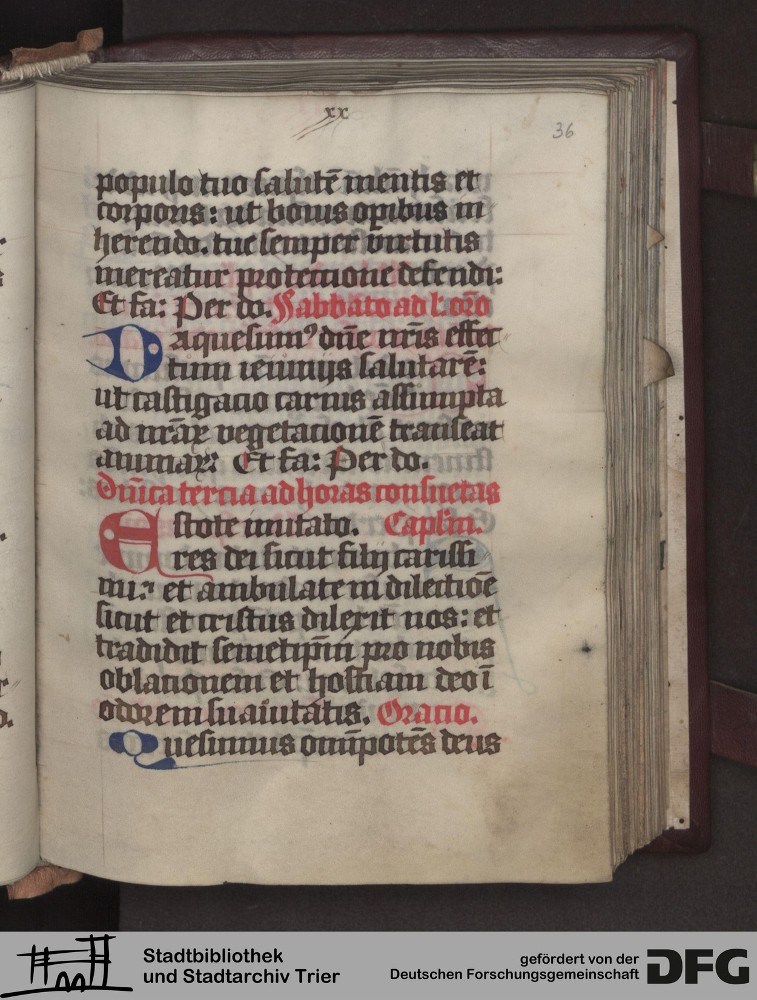 xx
36
populo tuo salutē mentis et
corporis: ut bonis op̄ibus in
herendo. tue semper virtutis
mereatur protectione defendi:
Et fa: Per do. Sabbato ad l. oro
Da quesumꝰ dn̄e nr̄is effec
tum ieiunijs salutarē:
ut castigacio carnis assumpta
ad nr̄aꝝ vegetacionē transeat
animaꝝ: Et fa: Per do.
Dn̄ica tercia ad horas consuetas
Estote imitato. Caplm.
res dei sicut filij carissi
mi: et ambulate in dilectiōe
sicut et cristus dilexit nos: et
tradidit semetip̄m pro nobis
oblationem et hostiam deo ī
odorem suauitatis. Oracio.
Quesumus omīpotēs deus
Stadtbibliothek
und Stadtarchiv Trier
gefördert von der
Deutschen Forschungsgemeinschaft
DFG